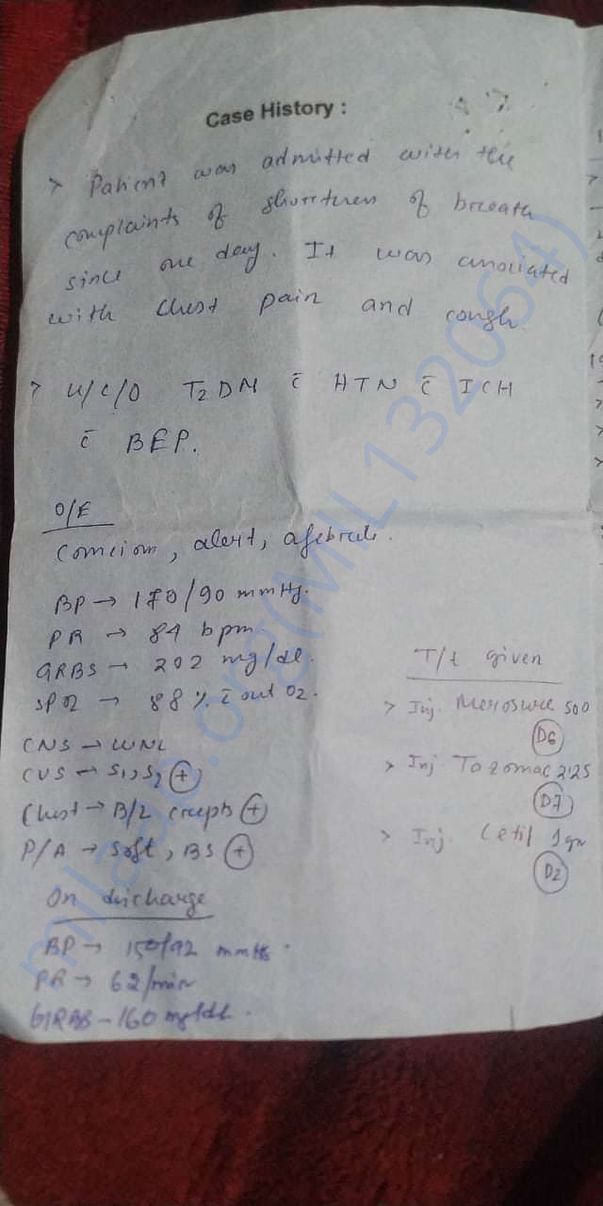 Case History :
> Patient was admitted with the
complaints of shortness of breath
since one day. It was associated
with chest pain and cough.
> K/C/O T2DM c̄ HTN c̄ ICH
c̄ BEP.
O/E
Conscious, alert, afebrile.
BP → 170/90 mmHg.
PR → 84 bpm
GRBS → 202 mg/dl.
SPO2 → 88% c̄ out O2.
CNS → WNL
CVS → S1, S2 (+)
Chest → B/L crepts (+)
P/A → Soft, BS (+)
On discharge
BP → 150/92 mmHg.
PR → 62/min
GRBS - 160 mg/dl.
T/t given
> Inj. Merosure 500
D6
> Inj. Tazomac 2.25
D7
> Inj. Cetil 1gm
D2
milaap.org(MIL132064)